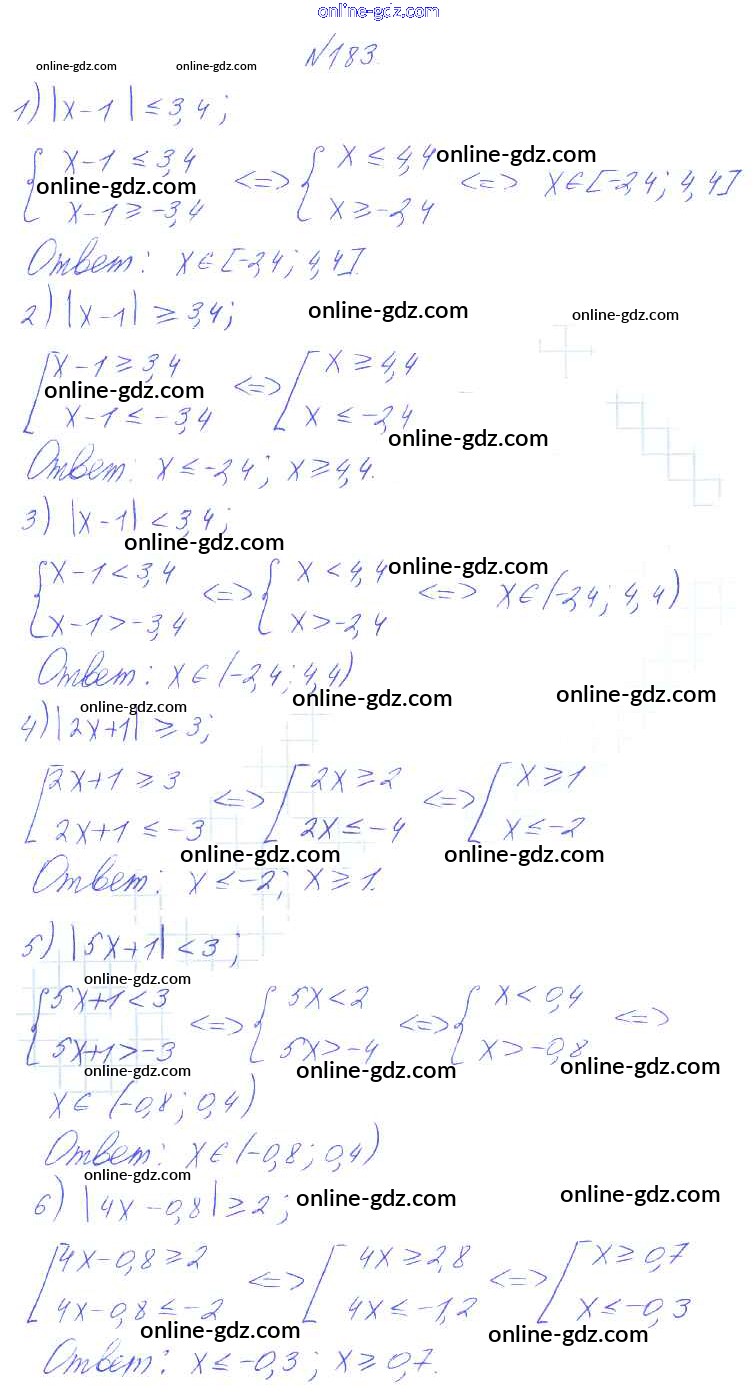 online-gdz.com
№183.
online-gdz.com online-gdz.com
1) |x-1| ≤ 3,4;
{ x-1 ≤ 3,4 <=> { x ≤ 4,4 online-gdz.com
online-gdz.com <=> x∈[-2,4; 4,4]
x-1 ≥ -3,4 x ≥ -2,4
Ответ: x∈[-2,4; 4,4].
2) |x-1| ≥ 3,4; online-gdz.com online-gdz.com
[ x-1 ≥ 3,4 <=> [ x ≥ 4,4
online-gdz.com
x-1 ≤ -3,4 x ≤ -2,4
online-gdz.com
Ответ: x ≤ -2,4; x ≥ 4,4.
3) |x-1| < 3,4;
online-gdz.com
{ x-1 < 3,4 <=> { x < 4,4 online-gdz.com <=> x∈(-2,4; 4,4)
x-1 > -3,4 x > -2,4
Ответ: x∈(-2,4; 4,4)
online-gdz.com online-gdz.com
online-gdz.com
4) |2x+1| ≥ 3;
[ 2x+1 ≥ 3 <=> [ 2x ≥ 2 <=> [ x ≥ 1
2x+1 ≤ -3 2x ≤ -4 x ≤ -2
online-gdz.com online-gdz.com
Ответ: x ≤ -2; x ≥ 1.
5) |5x+1| < 3;
online-gdz.com
{ 5x+1 < 3 <=> { 5x < 2 <=> { x < 0,4 <=>
5x+1 > -3 5x > -4 x > -0,8
online-gdz.com online-gdz.com online-gdz.com
x∈(-0,8; 0,4)
Ответ: x∈(-0,8; 0,4)
online-gdz.com
6) |4x-0,8| ≥ 2; online-gdz.com online-gdz.com
[ 4x-0,8 ≥ 2 <=> [ 4x ≥ 2,8 <=> [ x ≥ 0,7
4x-0,8 ≤ -2 4x ≤ -1,2 x ≤ -0,3
online-gdz.com online-gdz.com
Ответ: x ≤ -0,3; x ≥ 0,7.